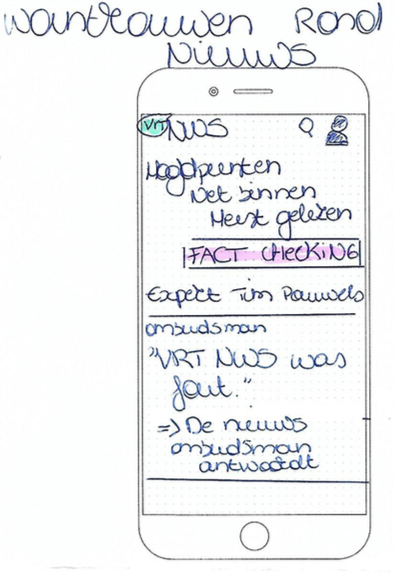 Wantrouwen Rond
Nieuws
VRT NWS
Hoogdpunten
Net binnen
Meest gelezen
FACT CHECKING
Expert Tim Pauwels
ombudsman
"VRT NWS was
fout."
=> De nieuws
ombudsman
antwoordt